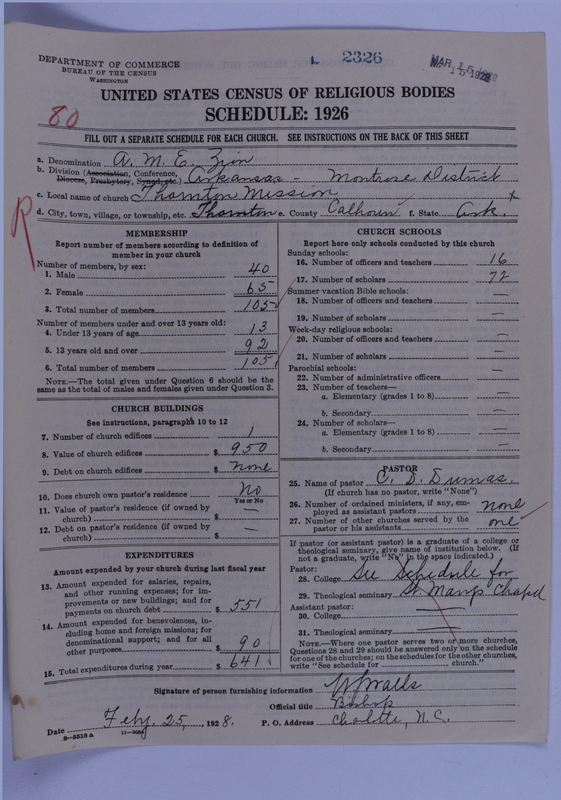 DEPARTMENT OF COMMERCE
BUREAU OF THE CENSUS
WASHINGTON
L 2326
MAR 15 1928
80
UNITED STATES CENSUS OF RELIGIOUS BODIES
SCHEDULE: 1926
FILL OUT A SEPARATE SCHEDULE FOR EACH CHURCH. SEE INSTRUCTIONS ON THE BACK OF THIS SHEET
a. Denomination A. M. E. Zion
b. Division (Association, Conference, Diocese, Presbytery, Synod, etc.) Arkansas - Montrose District
c. Local name of church Thornton Mission x
d. City, town, village, or township, etc. Thornton e. County Calhoun f. State Ark.
R
MEMBERSHIP
Report number of members according to definition of
member in your church
Number of members, by sex:
1. Male 40
2. Female 65
3. Total number of members 105
Number of members under and over 13 years old:
4. Under 13 years of age 13
5. 13 years old and over 92
6. Total number of members 105
NOTE.—The total given under Question 6 should be the
same as the total of males and females given under Question 3.
CHURCH BUILDINGS
See instructions, paragraphs 10 to 12
7. Number of church edifices 1
8. Value of church edifices $ 950
9. Debt on church edifices $ none
10. Does church own pastor's residence No
Yes or No
11. Value of pastor's residence (if owned by
church) $ —
12. Debt on pastor's residence (if owned by
church) $ —
EXPENDITURES
Amount expended by your church during last fiscal year
13. Amount expended for salaries, repairs,
and other running expenses; for im-
provements or new buildings; and for
payments on church debt $ 551
14. Amount expended for benevolences, in-
cluding home and foreign missions; for
denominational support; and for all
other purposes $ 90
15. Total expenditures during year $ 641
CHURCH SCHOOLS
Report here only schools conducted by this church
Sunday schools:
16. Number of officers and teachers 16
17. Number of scholars 72
Summer vacation Bible schools:
18. Number of officers and teachers —
19. Number of scholars —
Week-day religious schools:
20. Number of officers and teachers —
21. Number of scholars —
Parochial schools:
22. Number of administrative officers —
23. Number of teachers—
a. Elementary (grades 1 to 8) —
b. Secondary —
24. Number of scholars—
a. Elementary (grades 1 to 8) —
b. Secondary —
PASTOR
25. Name of pastor C. D. Dumas.
(If church has no pastor, write "None")
26. Number of ordained ministers, if any, em-
ployed as assistant pastors none
27. Number of other churches served by the
pastor or his assistants one
If pastor (or assistant pastor) is a graduate of a college or
theological seminary, give name of institution below. (If
not a graduate, write "No" in the space indicated.)
Pastor:
28. College See Schedule for
29. Theological seminary St. Marys Chapel
Assistant pastor:
30. College —
31. Theological seminary —
NOTE.—Where one pastor serves two or more churches,
Questions 28 and 29 should be answered only on the schedule
for one of the churches; on the schedules for the other churches,
write "See schedule for church."
Signature of person furnishing information W J Walls
Official title Bishop
Date Feby. 25, 1928. P. O. Address Charlotte, N. C.
8—5518 a